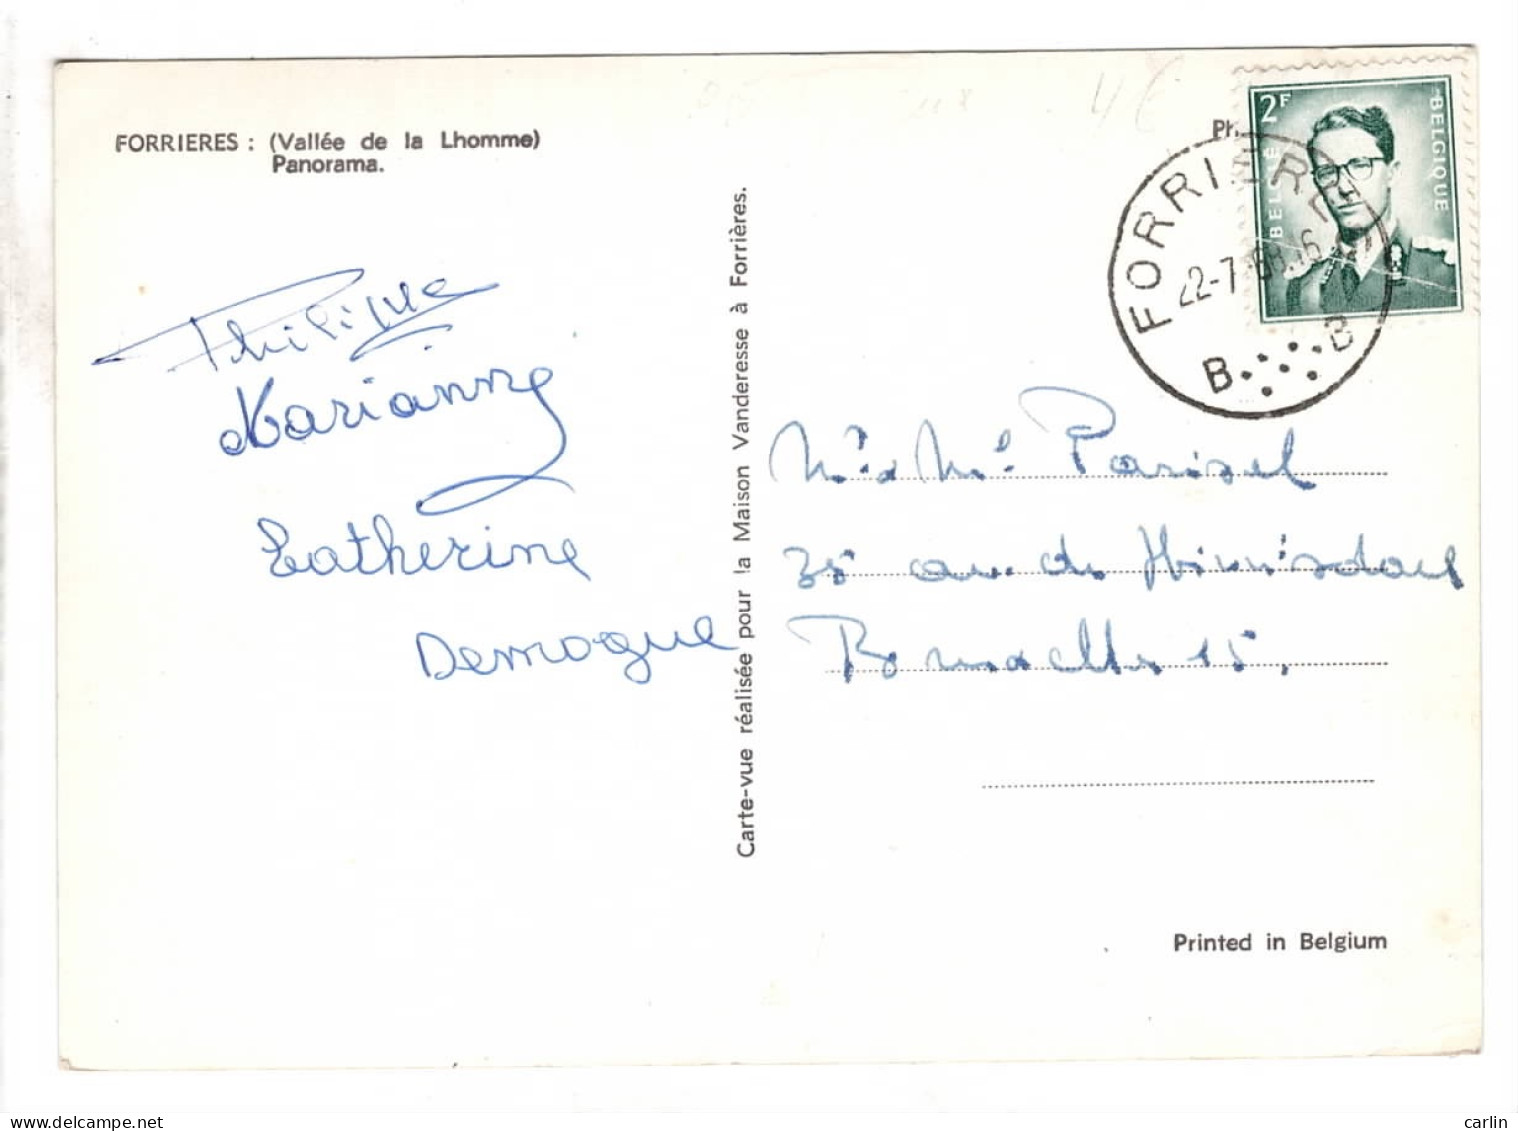 FORRIERES : (Vallée de la Lhomme)
Panorama.
Philippe
Marianne
Catherine
Demogue
Carte-vue réalisée pour la Maison Vanderesse à Forrières.
Ph.
2F
BELGIË
BELGIQUE
FORRIERES
22-7
16
B B
Mr & Me Parisel
35 av. de
Bruxelles 15.
Printed in Belgium
delcampe.net
carlin